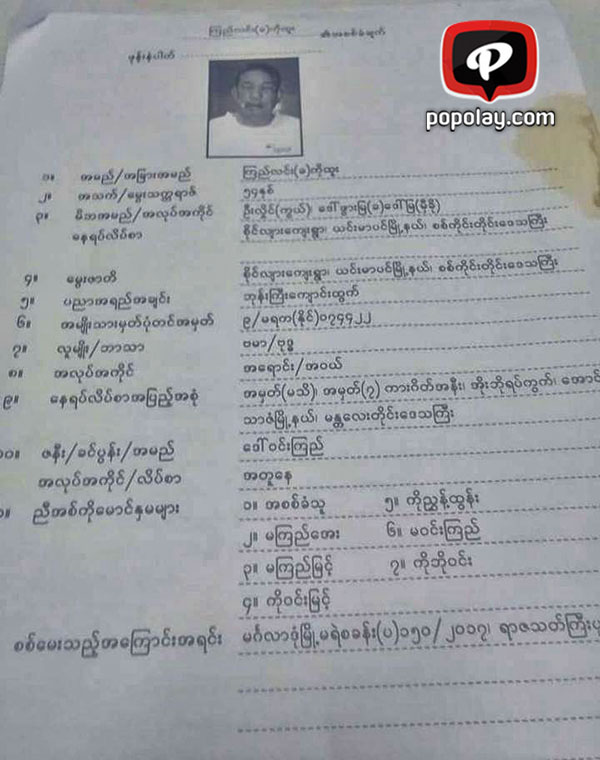 ကြည်လင်း(ခ)ကိုထူး ၏အစစ်ခံချက်
ဖုန်းနံပါတ်
popolay.com
၁။ အမည်/အခြားအမည် ကြည်လင်း(ခ)ကိုထူး
၂။ အသက်/မွေးသက္ကရာဇ် ၅၄နှစ်
၃။ မိဘအမည်/အလုပ်အကိုင် ဦးလှိုင်(ကွယ်)၊ ဒေါ်ဖွားမြ(ခ)ဒေါ်မြ(မှီခို)
နေရပ်လိပ်စာ စိုင်လျားကျေးရွာ၊ ယင်းမာပင်မြို့နယ်၊ စစ်ကိုင်းတိုင်းဒေသကြီး
၄။ မွေးဇာတိ စိုင်လျားကျေးရွာ၊ ယင်းမာပင်မြို့နယ်၊ စစ်ကိုင်းတိုင်းဒေသကြီး
၅။ ပညာအရည်အချင်း ဘုန်းကြီးကျောင်းထွက်
၆။ အမျိုးသားမှတ်ပုံတင်အမှတ် ၉/မရက(နိုင်)၀၇၄၄၂၂
၇။ လူမျိုး/ဘာသာ ဗမာ/ဗုဒ္ဓ
၈။ အလုပ်အကိုင် အရောင်း/အဝယ်
၉။ နေရပ်လိပ်စာအပြည့်အစုံ အမှတ်(မသိ)၊ အမှတ်(၇) ကားဂိတ်အနီး၊ အိုးဘိုရပ်ကွက်၊ အောင်
သာဇံမြို့နယ်၊ မန္တလေးတိုင်းဒေသကြီး
၁၀။ ဇနီး/ခင်ပွန်း/အမည် ဒေါ်ဝင်းကြည်
အလုပ်အကိုင်/လိပ်စာ အတူနေ
။ ညီအစ်ကိုမောင်နှမများ ၁။ အစစ်ခံသူ ၅။ ကိုညွန့်ထွန်း
၂။ မကြည်အေး ၆။ မဝင်းကြည်
၃။ မကြည်မြင့် ၇။ ကိုဘိုဝင်း
၄။ ကိုဝင်းမြင့်
စစ်မေးသည့်အကြောင်းအရင်း မင်္ဂလာဒုံမြို့မရဲစခန်း(ပ)၁၅၀/၂၀၁၇၊ ရာဇသတ်ကြီး